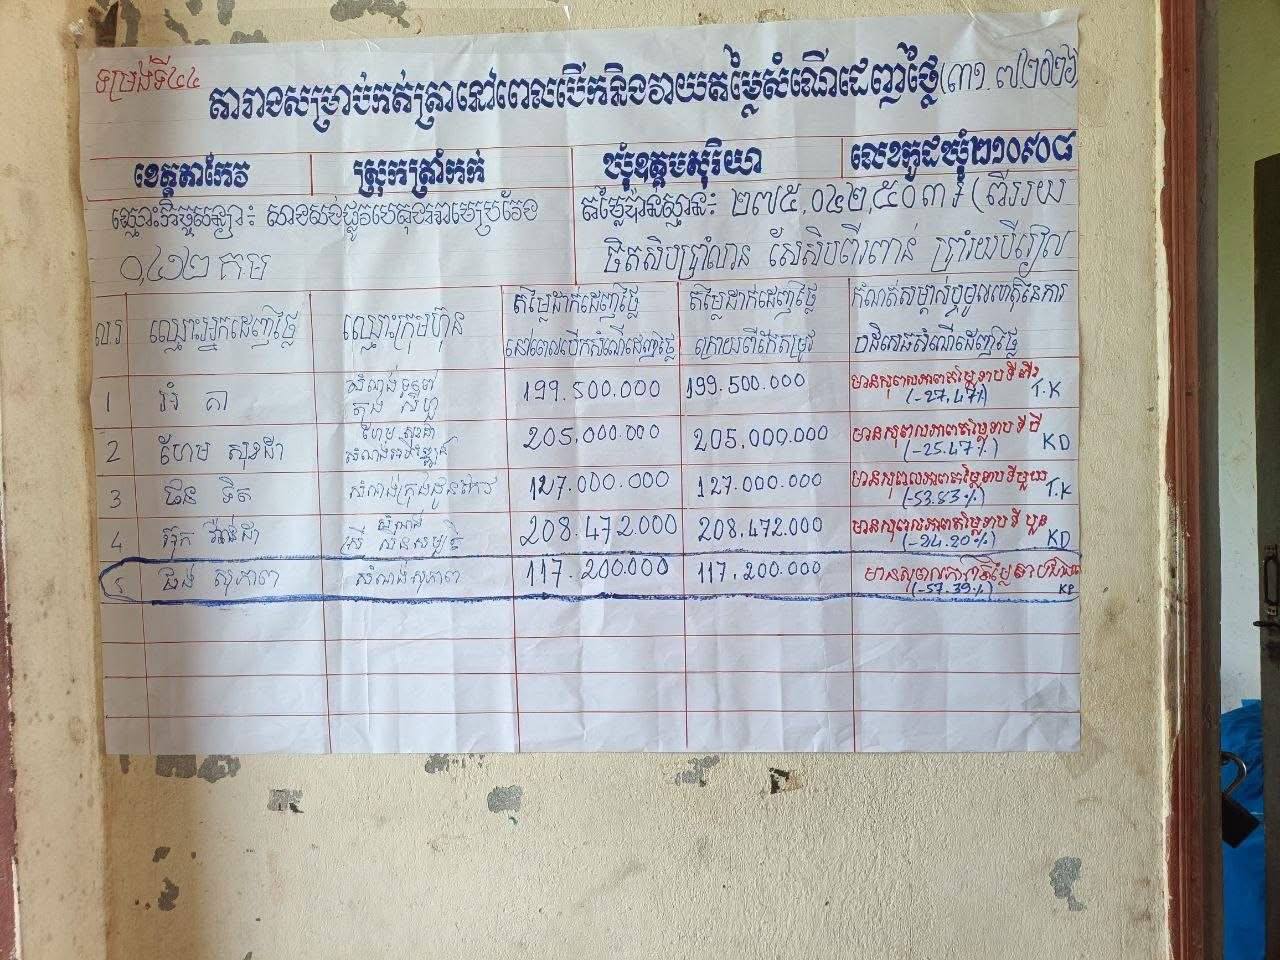 ទម្រង់ទី៤៤
តារាងសម្រាប់កត់ត្រានៅពេលបើកនិងវាយតម្លៃសំណើដេញថ្លៃ(៣១.៧២០២៦
ខេត្តតាកែវ ស្រុកត្រាំកក់ ឃុំឧត្តមសុរិយា លេខកូដឃុំ២១០៩០៨
ឈ្មោះកិច្ចសន្យា៖ សាងសង់ផ្លូវបេតុងអាមេប្រវែង
០,៤៣២គម
តម្លៃប៉ាន់ស្មាន៖ ២៧៥,០៤២,៥០៣៛(ពីររយ
ចិតសិបប្រាំលាន សែសិបពីរពាន់ ប្រាំរយបីរៀល
ល.រ ឈ្មោះអ្នកដេញថ្លៃ ឈ្មោះក្រុមហ៊ុន តម្លៃដាក់ដេញថ្លៃ នៅពេលបើកសំណើដេញថ្លៃ តម្លៃដាក់ដេញថ្លៃ ក្រោយពីកែតម្រូវ កំណត់សម្គាល់ឬមូលហេតុនៃការ បដិសេធសំណើដេញថ្លៃ
1 អ៊ំ តា សំណង់ 199.500.000 199.500.000 មានសុពលភាពតម្លៃទាបទីពីរ (-27,47%) T.K
2 ហែម សុវដា ហែម សុវដា 205,000.000 205,000.000 មានសុពលភាពតម្លៃទាបទីបី (-25.47%) KD
3 ផន ទិត 127.000.000 127.000.000 មានសុពលភាពតម្លៃទាបទីមួយ (-53.83%) T.K
4 សំណង់ 208.472.000 208.472.000 មានសុពលភាពតម្លៃទាបទី បួន (-24.20%) KD
5 ផង់ សុភាព សំណង់សុភាព 117.200.000 117.200.000 មានសុពលភាពតម្លៃទាប (-57.39%) KD